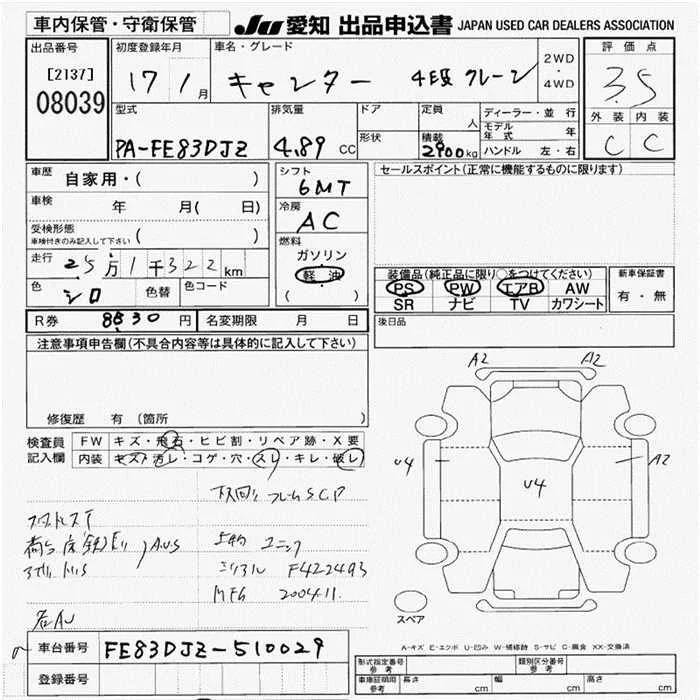 車内保管・守衛保管
JU 愛知 出品申込書 JAPAN USED CAR DEALERS ASSOCIATION
出品番号
[2137]
08039
初度登録年月
17 / 1月
車名・グレード
キャンター 4段クレーン
2WD
・
4WD
評価点
3.5
外装 内装
C C
型式
PA-FE83DJZ
排気量
4.89 CC
ドア
形状
定員
人
積載
2900kg
ディーラー・並行
モデル年式 年
ハンドル 左・右
車歴 自家用・( )
車検 年 月( 日)
受検形態
車検付きのみ記入して下さい ( )
走行 25万1千322km
色 シロ 色替 色コード
R券 8830円 名変期限 月 日
シフト
6MT
冷房
AC
燃料
ガソリン
軽油
( )
セールスポイント(正常に機能するものに限ります)
装備品(純正品に限り○をつけてください)
PS PW エアB AW
SR ナビ TV カワシート
新車保証書
有・無
後日品
注意事項申告欄(不具合内容等は具体的に記入して下さい)
修復歴 有 (箇所 )
検査員記入欄
FW キズ・飛石・ヒビ割・リペア跡・X要
内装 キズ・汚レ・コゲ・穴・スレ・キレ・破レ
下回り フレームS.C.P
上物 ユニック
シリアル F422493
MFG 2004.11.
A2 A2
U4 U4 A2
スペア
A-キズ E-エクボ U-凹み W-補修跡 S-サビ C-腐食 XX-交換済
車台番号 FE83DJZ-510029
登録番号
型式指定番号 参考 類別区分番号 参考
車庫証明用 参考 長さ cm 幅 cm 高さ cm